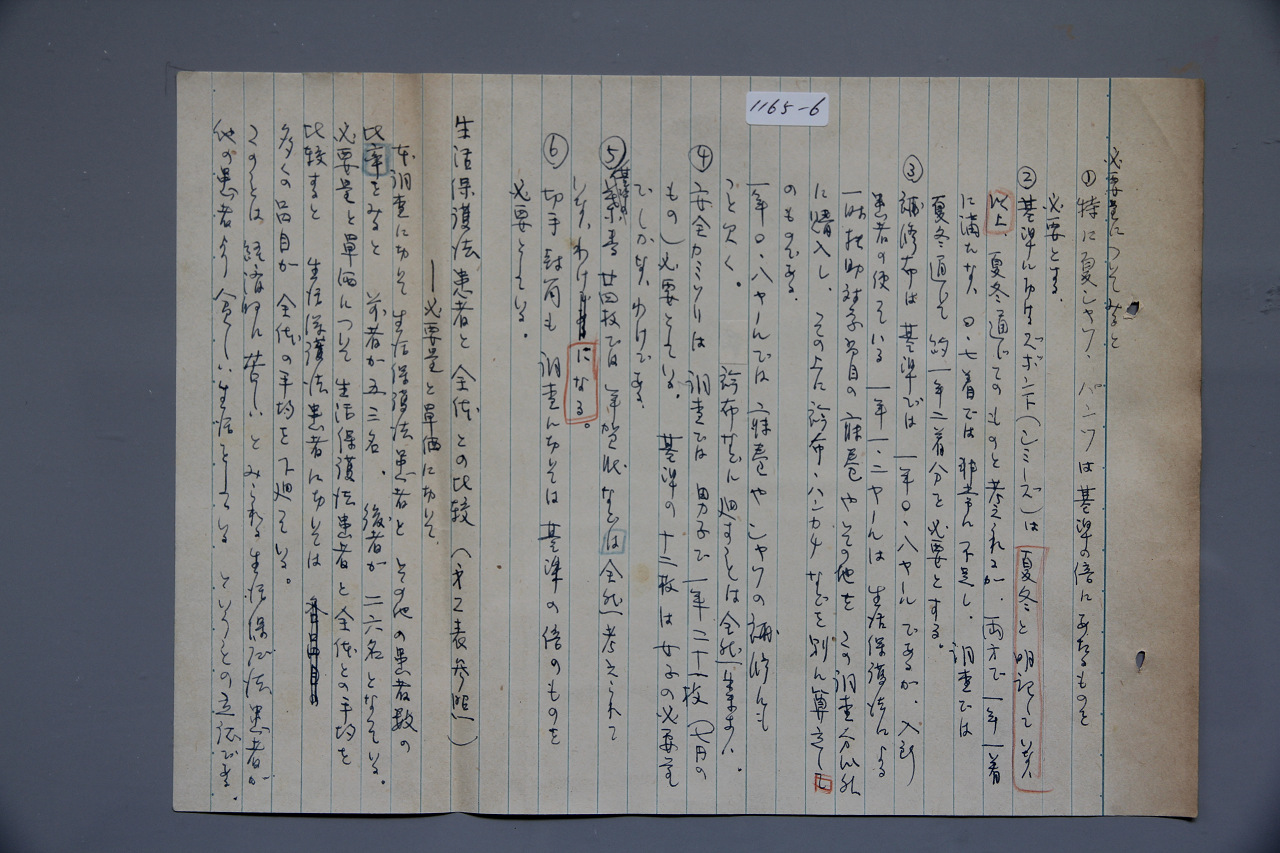 1165-6
必要量についてみると
① 特に夏シャツ、パンツは基準の倍にあたるものを
必要とする。
② 基準におけるズボン下(シミーズ)は夏冬と明記していない
以上、夏冬通じてのものと考えられるが、両方で一年一着
に満たない〇・七着では非常に不足し、調査では
夏冬通じて約一年二着分を必要とする。
③ 補修布は基準では一年〇・八ヤールであるが、入所
患者の使っている一年一・二ヤールは生活保護法による
一時扶助対象品目の寝巻やその他をこの調査分以外
に購入し、その上に診布・ハンカチなどを別に算定して
のものである。
一年〇・八ヤールでは寝巻やシャツの補修にも
こと欠く。診布などに廻すことは全然出来ない。
④ 安全カミソリは調査では男子で一年二十一枚(七円の
もの)必要としている。基準の十二枚は女子の必要量
でしかないわけである。
⑤ 基準の葉書廿四枚では年賀状などは全然考えられて
いないわけになる。
⑥ 切手封筒も調査に於ては基準の倍のものを
必要としている。
生活保護法患者と全体との比較(第2表参照)
―必要量と単価に於て、
本調査に於て生活保護法患者とその他の患者数の
比率をみると前者が五三名、後者が二六名となっている。
必要量と単価について生活保護法患者と全体との平均を
比較すると生活保護法患者に於ては
多くの品目が全体の平均を下廻っている。
このことは経済的に苦しいとみられる生活保護法患者が
他の患者より貧しい生活をしているということの立証である。